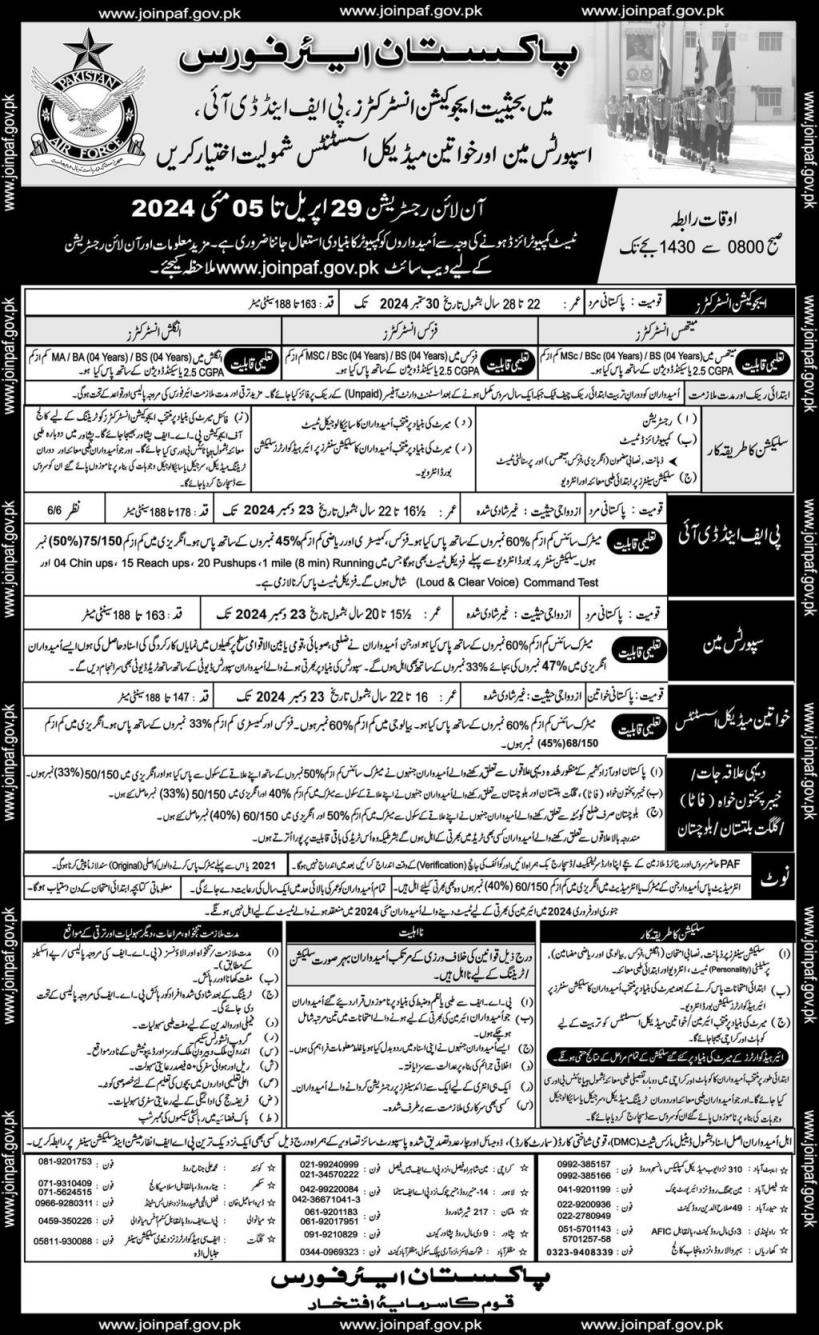 www.joinpaf.gov.pk
www.joinpaf.gov.pk
www.joinpaf.gov.pk
PAKISTAN
AIR FORCE
پاکستان ایئر فورس
میں بحیثیت ایجوکیشن انسٹرکٹرز، پی ایف اینڈ ڈی آئی،
اسپورٹس مین اور خواتین میڈیکل اسسٹنٹس شمولیت اختیار کریں
آن لائن رجسٹریشن 29 اپریل تا 05 مئی 2024
ٹیسٹ کمپیوٹرائزڈ ہونے کی وجہ سے اُمیدواروں کو کمپیوٹر کا بنیادی استعمال جاننا ضروری ہے۔ مزید معلومات اور آن لائن رجسٹریشن
کے لیے ویب سائٹ www.joinpaf.gov.pk ملاحظہ کیجئے۔
اوقات رابطہ
صبح 0800 سے 1430 بجے تک
ایجوکیشن انسٹرکٹرز
قومیت: پاکستانی مرد
عمر: 22 تا 28 سال بشمول تاریخ 30 ستمبر 2024 تک
قد: 163 تا 188 سینٹی میٹر
میتھس انسٹرکٹرز
فزکس انسٹرکٹرز
انگلش انسٹرکٹرز
تعلیمی قابلیت
میتھس میں MSc / BSc (04 Years) / BS (04 Years) کم از کم
2.5 CGPA یا سیکنڈ ڈویژن کے ساتھ پاس کیا ہو۔
تعلیمی قابلیت
فزکس میں MSC / BSc (04 Years) / BS (04 Years) کم از کم
2.5 CGPA یا سیکنڈ ڈویژن کے ساتھ پاس کیا ہو۔
تعلیمی قابلیت
انگلش میں MA / BA (04 Years) / BS (04 Years) کم از کم
2.5 CGPA یا سیکنڈ ڈویژن کے ساتھ پاس کیا ہو۔
ابتدائی رینک اور مدت ملازمت
اُمیدواران کو دوران تربیت ابتدائی رینک چیف ٹیک جبکہ ایک سال سروس مکمل ہونے کے بعد اسسٹنٹ وارنٹ آفیسر (Unpaid) کے رینک پر فائز کیا جائے گا۔ مزید ترقی اور مدت ملازمت ایئر فورس کی مروجہ پالیسی اور قواعد کے تحت ہوگی۔
سلیکشن کا طریقہ کار
(ا) رجسٹریشن
(ب) کمپیوٹرائزڈ ٹیسٹ
ذہانت، نصابی مضمون (انگریزی، فزکس، میتھس) اور پرسنالٹی ٹیسٹ
(ج) سلیکشن سینٹرز پر ابتدائی طبی معائنہ اور انٹرویو
(د) میرٹ کی بنیاد پر منتخب اُمیدواران کا سائیکالوجیکل ٹیسٹ
میرٹ کی بنیاد پر منتخب اُمیدواران کا سلیکشن سنٹرز پر ایئر ہیڈ کوارٹرز سلیکشن
بورڈ انٹرویو۔
پی ایف اینڈ ڈی آئی
قومیت: پاکستانی مرد
ازدواجی حیثیت: غیر شادی شدہ
عمر: 16½ تا 22 سال بشمول تاریخ 23 دسمبر 2024 تک
قد: 178 تا 188 سینٹی میٹر
نظر 6/6
تعلیمی قابلیت
میٹرک سائنس کم از کم 60% نمبروں کے ساتھ پاس کیا ہو۔ فزکس، کیمسٹری اور ریاضی کم از کم 45% نمبروں کے ساتھ پاس ہو۔ انگریزی میں کم از کم 75/150 (50%) نمبر
ہوں۔ سلیکشن سنٹر پر بورڈ انٹرویو سے پہلے فزیکل ٹیسٹ بھی ہوگا جس میں 1 mile (8 min) Running، 20 Pushups، 15 Reach ups، 04 Chin ups اور
(Loud & Clear Voice) Command Test شامل ہوں گے۔ فزیکل ٹیسٹ پاس کرنا لازمی ہے۔
سپورٹس مین
قومیت: پاکستانی مرد
ازدواجی حیثیت: غیر شادی شدہ
عمر: 15½ تا 20 سال بشمول تاریخ 23 دسمبر 2024 تک
قد: 163 تا 188 سینٹی میٹر
تعلیمی قابلیت
میٹرک سائنس کم از کم 60% نمبروں کے ساتھ پاس کیا ہو اور جن اُمیدواران نے ضلعی، صوبائی، قومی یا بین الاقوامی سطح پر کھیلوں میں نمایاں کارکردگی کی اسناد حاصل کی ہوں ایسے اُمیدواران
انگریزی میں 47% نمبروں کی بجائے 33% نمبروں کے ساتھ بھی اہل ہوں گے۔ سپورٹس کی بنیاد پر بھرتی ہونے والے اُمیدواران سپورٹس ڈیوٹی کے ساتھ ساتھ ٹریڈ ڈیوٹی بھی سرانجام دیں گے۔
خواتین میڈیکل اسسٹنٹس
قومیت: پاکستانی خواتین
ازدواجی حیثیت: غیر شادی شدہ
عمر: 16 تا 22 سال بشمول تاریخ 23 دسمبر 2024 تک
قد: 147 تا 188 سینٹی میٹر
تعلیمی قابلیت
میٹرک سائنس کم از کم 60% نمبروں کے ساتھ پاس کیا ہو۔ بیالوجی میں کم از کم 60% نمبر ہوں۔ فزکس اور کیمسٹری کم از کم 33% نمبروں کے ساتھ پاس ہو۔ انگریزی میں کم از کم
68/150 (45%) نمبر ہوں۔
دیہی علاقہ جات/
خیبر پختون خواہ (فاٹا)
/گلگت بلتستان/بلوچستان
(ا) پاکستان اور آزاد کشمیر کے منظور شدہ دیہی علاقوں سے تعلق رکھنے والے اُمیدواران جنہوں نے میٹرک سائنس کم از کم 50% نمبروں کے ساتھ اپنے علاقے کے سکول سے پاس کیا ہو اور انگریزی میں 50/150 (33%) نمبر ہوں۔
(ب) خیبر پختون خواہ (فاٹا)، گلگت بلتستان اور بلوچستان سے تعلق رکھنے والے اُمیدواران نے اپنے علاقے کے سکول سے میٹرک میں کم از کم 40% اور انگریزی میں 50/150 (33%) نمبر حاصل کئے ہوں۔
(ج) بلوچستان صرف ضلع کوئٹہ سے تعلق رکھنے والے اُمیدواران جنہوں نے اپنے علاقے کے سکول سے میٹرک میں کم از کم 50% اور انگریزی میں 60/150 (40%) نمبر حاصل کئے ہوں۔
مندرجہ بالا علاقوں سے تعلق رکھنے والے اُمیدواران کسی بھی ٹریڈ میں بھرتی کے اہل ہوں گے بشرطیکہ وہ اُس ٹریڈ کی باقی قابلیت پر پورا اُترتے ہوں۔
نوٹ
PAF حاضر سروس اور ریٹائرڈ ملازمین کے بچے اپنا وارڈ سرٹیفکیٹ/ڈسچارج بک ہمراہ لائیں اور کوائف کی جانچ (Verification) کے وقت اندراج کرائیں بعد میں اندراج نہیں ہوگا۔
2021 یا اس سے پہلے میٹرک پاس کرنے والوں کو اصلی (Original) سند لازماً پیش کرنا ہوگی۔
انٹرمیڈیٹ پاس اُمیدوار جن کے میٹرک یا انٹرمیڈیٹ میں انگریزی میں کم از کم 60/150 (40%) نمبر ہوں وہ بھی بھرتی کیلئے اہل ہیں۔
تمام اُمیدواران کو عمر کی بالائی حد میں ایک سال کی رعایت دے جائے گی۔
معلوماتی کتابچہ ابتدائی امتحان کے دن دستیاب ہوگا۔
جنوری اور فروری 2024 میں ایئر مین کی بھرتی کے لیے ٹیسٹ دینے والے اُمیدواران مئی 2024 میں منعقد ہونے والے ٹیسٹ کے لیے اہل نہیں ہونگے۔
سلیکشن کا طریقہ کار
(ا) سلیکشن سینٹرز پر ذہانت، نصابی امتحان (انگلش، فزکس، بیالوجی اور ریاضی مضامین)،
پرسنیلٹی (Personality) ٹیسٹ، انٹرویو اور ابتدائی طبی معائنہ۔
(ب) ابتدائی امتحانات پاس کرنے کے بعد میرٹ کی بنیاد پر منتخب اُمیدواران کا سلیکشن سنٹرز پر
ایئر ہیڈ کوارٹرز سلیکشن بورڈ انٹرویو۔
(ج) میرٹ کی بنیاد پر منتخب ایئر مین/خواتین میڈیکل اسسٹنٹس کو تربیت کے لیے
کوہاٹ اور کراچی بھیجا جائے گا۔
ایئر ہیڈ کوارٹرز کے میرٹ کی بنیاد پر کئے گئے سلیکشن کے تمام مراحل کے نتائج حتمی ہونگے۔
نااہلیت
درج ذیل قوانین کی خلاف ورزی کے مرتکب اُمیدواران بہر صورت سلیکشن
/ٹریننگ کے لیے نااہل ہیں۔
(ا) پی۔اے۔ایف سے طبی یا نظم و ضبط کی بنیاد پر ناموزوں قرار دیئے گئے اُمیدواران
(ب) جو اُمیدواران ایئر مین کی بھرتی کے لیے ہونے والے امتحانات میں تین مرتبہ شامل
ہو چکے ہوں۔
(ج) ایسے اُمیدواران جنہوں نے اپنی اسناد میں ردوبدل کیا ہو یا غلط معلومات فراہم کی ہوں۔
(د) اخلاقی جرائم کی بناء پر عدالت سے سزا یافتہ۔
(ر) ایک ہی انٹری کے لیے ایک سے زائد سینٹرز پر رجسٹریشن کروانے والے اُمیدواران۔
(س) کسی بھی سرکاری ملازمت سے برطرف شدہ۔
مدت ملازمت، تنخواہ، مراعات، دیگر سہولیات اور ترقی کے مواقع
(ا) مدت ملازمت/تنخواہ اور الاؤنسز (پی۔اے۔ایف کی مروجہ پالیسی/پے اسکیلز
کے مطابق)۔
(ب) مفت کھانا اور رہائش۔
(ج) ٹریننگ کے بعد شادی شدہ افراد کو رہائش پی۔اے۔ایف کی مروجہ پالیسی کے تحت
دی جائے گی۔
(د) فیملی اور والدین کے لیے مفت طبی سہولیات۔
(ر) گروپ انشورنس سکیم
(س) اندرون ملک و بیرون ملک کورسز اور ڈیپوٹیشن کے نادر مواقع۔
(ش) ریل اور ہوائی سفر 50 فیصد رعایتی سہولت۔
(ص) اعلیٰ تعلیمی اداروں میں بچوں کی تعلیم کے لئے خصوصی کوٹہ۔
(ض) فریضہ حج کی ادائیگی کے لیے رعایتی سفری سہولیات۔
(ط) پاک فضائیہ میں رہائشی سکیموں کی ممبر شپ
اہل اُمیدواران اصل اسناد بشمول ڈیٹیل مارکس شیٹ (DMC)، قومی شناختی کارڈ (سمارٹ کارڈ)، ڈومیسائل اور چار عدد تصدیق شدہ پاسپورٹ سائز تصاویر کے ہمراہ درج ذیل کسی بھی ایک نزدیک ترین پی اے ایف انفارمیشن اینڈ سلیکشن سینٹر پر رابطہ کریں۔
ایبٹ آباد: 310 نزد ایوب میڈیکل کمپلیکس مانسہرہ روڈ فون: 0992-385157
0992-385166
فیصل آباد: فون: 041-9201199
حیدر آباد: 49 صلاح الدین روڈ کینٹ فون: 022-9200936
022-2780949
راولپنڈی: 3 دی مال روڈ بالمقابل AFIC فون: 051-5701143
5701257-58
کھاریاں: فون: 0323-9408339
کراچی: مین شاہراہ فیصل، نزد پی اے ایف بیس فیصل فون: 021-99240999
021-34570222
لاہور: فون: 042-99220084
042-36671041-3
ملتان: 217 شیر شاہ روڈ فون: 061-9201183
061-92017951
پشاور: 9 دی مال روڈ پشاور کینٹ فون: 091-9210829
مظفر آباد: فون: 0344-0969323
کوئٹہ: فون: 081-9201753
سکھر: فون: 071-9310409
071-5624515
ڈیرہ اسماعیل خان: فون: 0966-9280311
میانوالی: فون: 0459-350226
گلگت: فون: 05811-930088
پاکستان ایئر فورس
قوم کا سرمایۂ افتخار
www.joinpaf.gov.pk
www.joinpaf.gov.pk
www.joinpaf.gov.pk